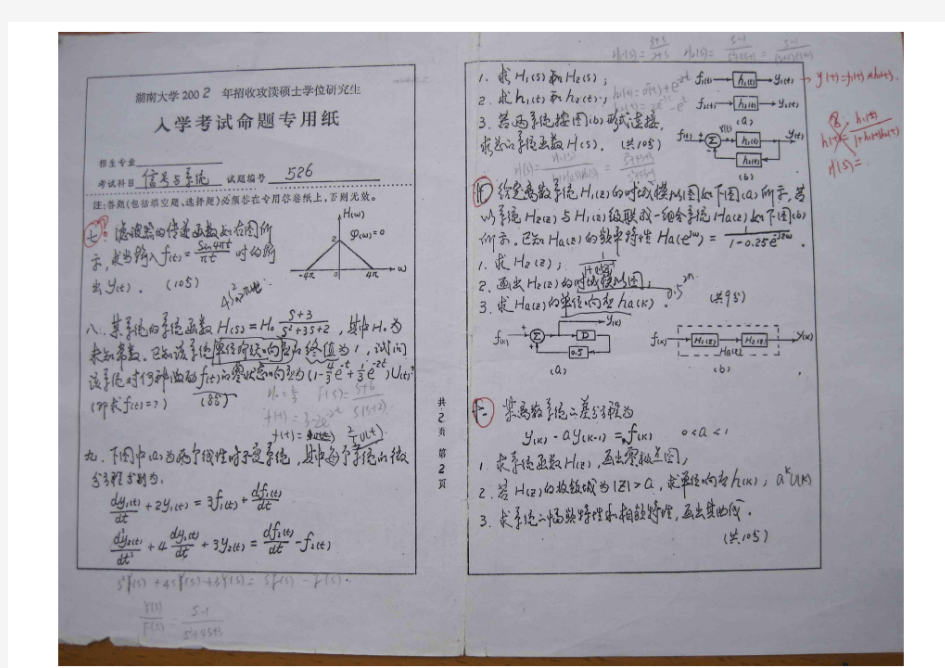 湖南大学2002年招收攻读硕士学位研究生
入学考试命题专用纸
招生专业
考试科目 信号与系统 试题编号 526
注:答题(包括填空题、选择题)必须答在专用答卷纸上,否则无效。
七、滤波器的传递函数如右图所
示,求当输入f(t)=sin4πt/πt 时的输
出y(t)。(10分)
H(ω)
φ(ω)=0
2
-4π 0 4π ω
八、某系统的系统函数H(s)=H₀ (s+3)/(s²+3s+2),其中H₀为
未知常数。已知该系统单位阶跃响应的终值为1,试问
该系统对何种激励f(t)的零状态响应为(1-4/3e^-t+1/3e^-2t)U(t)?
(即求f(t)=?) (8分)
九、下图中(a)为两个线性时不变系统,其中每个系统的微
分方程分别为:
dy₁(t)/dt+2y₁(t)=3f₁(t)+df₁(t)/dt
d²y₂(t)/dt²+4dy₂(t)/dt+3y₂(t)=df₂(t)/dt-f₂(t)
s²Y(s)+4sY(s)+3Y(s)=sF(s)-F(s).
Y(s)/F(s)=(s-1)/(s²+4s+3)
共2页 第2页
1. 求H₁(s)和H₂(s);
2. 求h₁(t)和h₂(t);
3. 若两系统按图(b)形式连接,
求总的系统函数H(s)。(共10分)
f₁(t) h₁(t) y₁(t)
f₂(t) h₂(t) y₂(t)
(a)
f(t) Σ h₁(t) y(t)
h₂(t)
(b)
y(t)=f(t)*h(t).
十、给定离散系统H₁(z)的时域模拟图如下图(a)所示,若
以系统H₂(z)与H₁(z)级联成一组合系统Ha(z)如下图(b)
所示。已知Ha(z)的频率特性Ha(e^jω)=1/(1-0.25e^-j2ω)。
1. 求H₂(z);
2. 画出H₂(z)的时域模拟图;
3. 求Ha(z)的单位响应ha(k)。 (共9分)
f(k) Σ D y(k)
0.5
(a)
f(k) H₁(z) H₂(z) y(k)
Ha(z)
(b)
某离散系统的差分方程为
y(k)-ay(k-1)=f(k) 0<a<1
1. 求系统函数H(z),画出零极点图;
2. 若H(z)的收敛域为|z|>a,求单位响应h(k); a^k U(k)
3. 求系统的幅频特性和相频特性,画出其曲线。
(共10分)